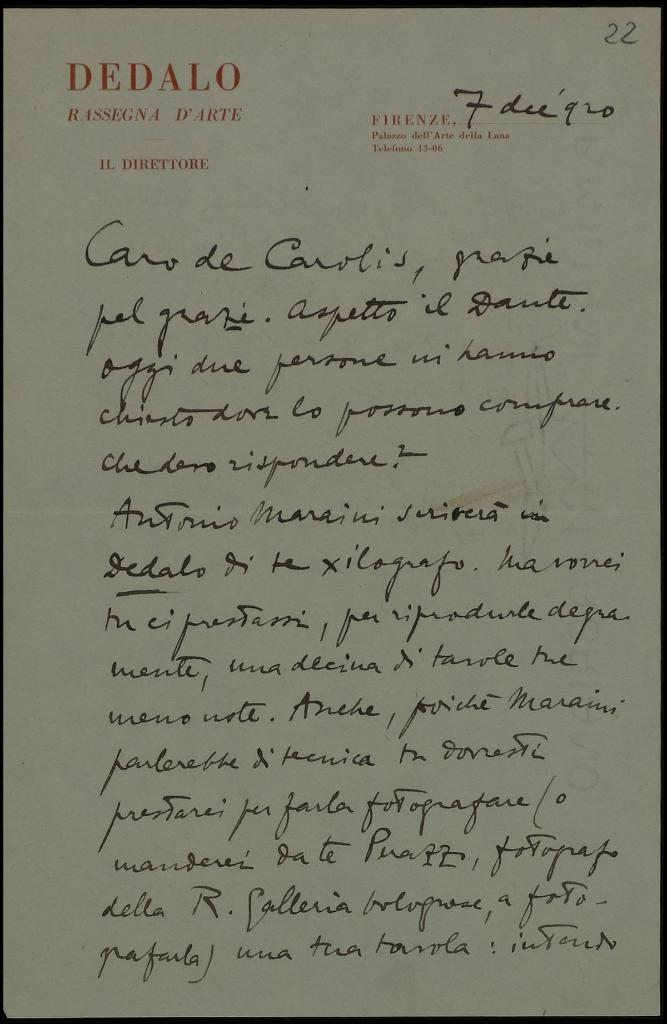 22
DEDALO
RASSEGNA D'ARTE
IL DIRETTORE
FIRENZE, 7 dic 920
Palazzo dell'Arte della Lana
Telefono 43-06
Caro de Carolis, grazie
pel grazie. Aspetto il Dante.
Oggi due persone mi hanno
chiesto dove lo possono comprare.
Che devo rispondere?
Antonio Maraini scriverà in
Dedalo di te xilografo. Ma vorrei
tu ci prestassi, per riprodurle degna
mente, una decina di tavole tue
meno note. Anche, poichè Maraini
parlerebbe di tecnica tu dovresti
prestarci per farla fotografare (o
manderei da te Perazzo, fotografo
della R. Galleria bolognese, a foto-
grafarla) una tua tavola: intendo